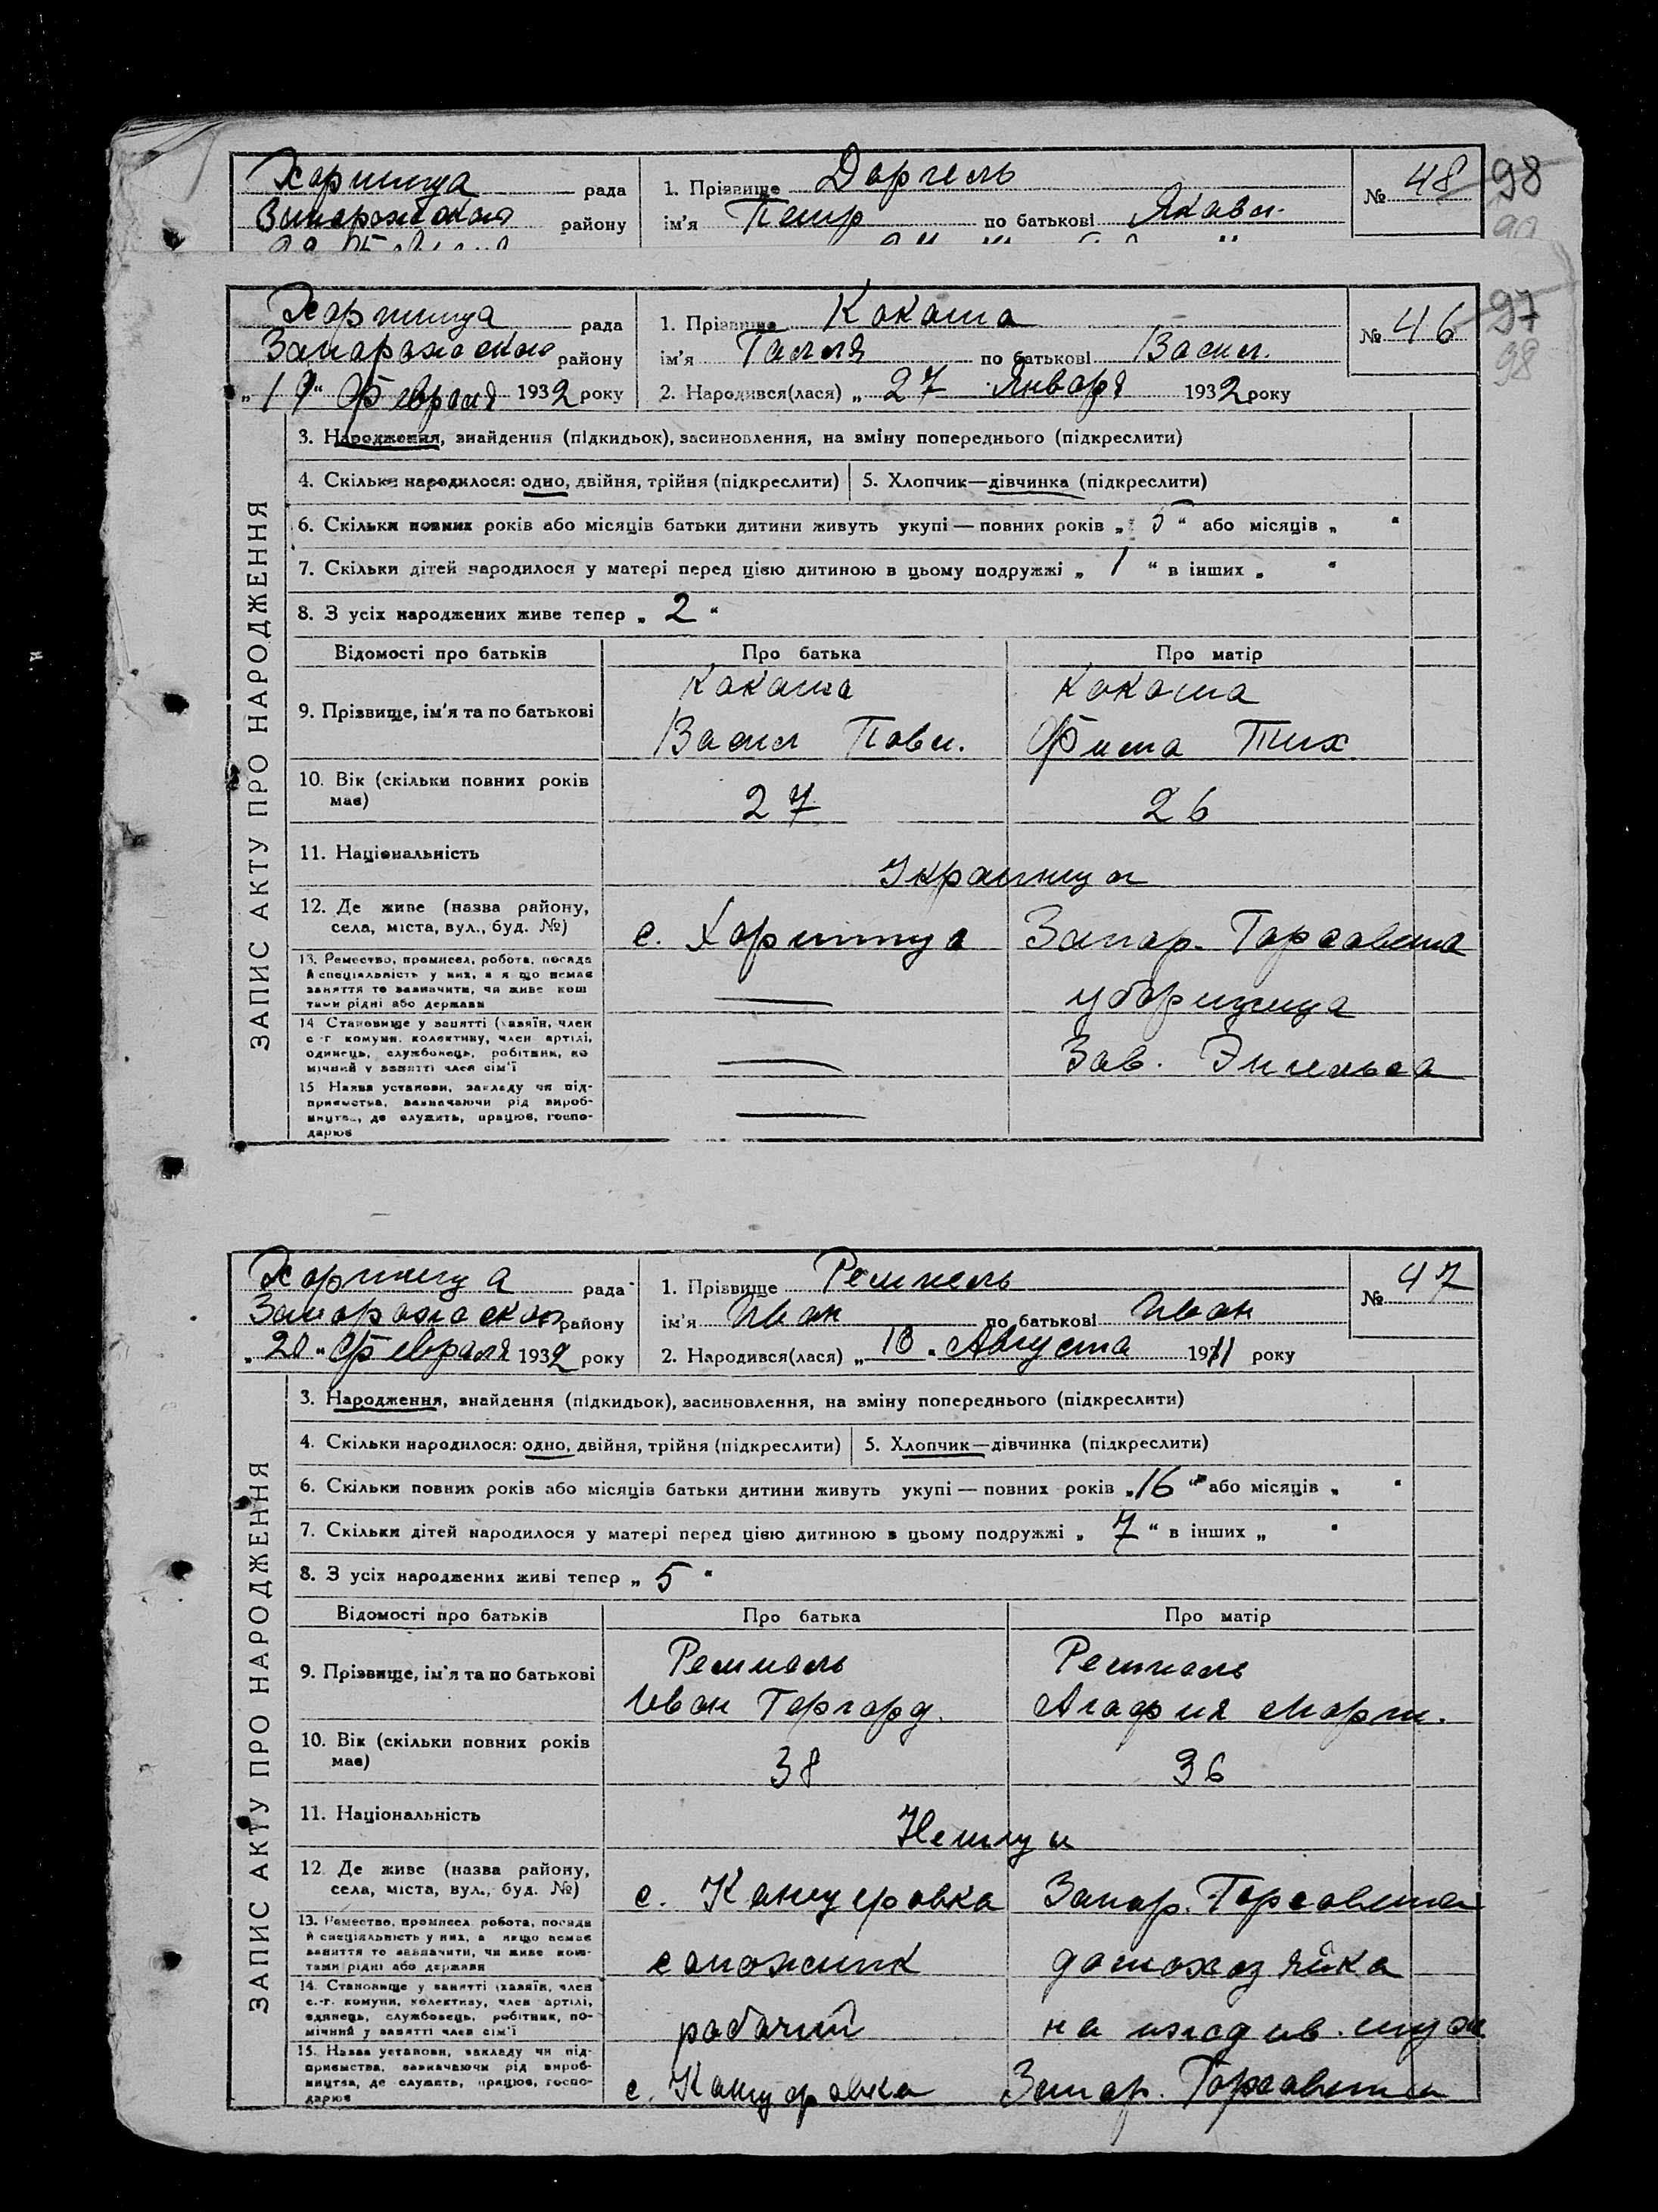 Хортица рада 1. Прізвище Доргель № 48 98
Запорожское району ім'я Петр по батькові Яковл.
Хортица рада 1. Прізвище Кокоша № 46 97
Запорожское району ім'я Галля по батькові Васил. 98
„19“ Февраля 1932 року 2. Народився(лася) „27 Января 1932 року
ЗАПИС АКТУ ПРО НАРОДЖЕННЯ
3. Народження, знайдення (підкидьок), засиновлення, на зміну попереднього (підкреслити)
4. Скільки народилося: одно, двійня, трійня (підкреслити) 5. Хлопчик—дівчинка (підкреслити)
6. Скільки повних років або місяців батьки дитини живуть укупі — повних років „ 5 “ або місяців „ “
7. Скільки дітей народилося у матері перед цією дитиною в цьому подружжі „ 1 “ в інших „ “
8. З усіх народжених живе тепер „ 2 “
Відомості про батьків Про батька Про матір
9. Прізвище, ім'я та по батькові Кокоша Кокоша
Васил Павл. Фима Тих
10. Вік (скільки повних років має) 27 26
11. Національність Украинца
12. Де живе (назва району, села, міста, вул., буд. №) с. Хортица Запор. Горсовета
13. Ремество, промисел, робота, посада й спеціальність у них, а якщо немає заняття то зазначити, чи живе коштами рідні або держави — уборщица
14. Становище у занятті (хазяїн, член с.-г. комуни, колективу, член артілі, одинець, службовець, робітник, помічний у занятті член сім'ї — Зав. Энгельса
15. Назва установи, закладу чи підприємства, зазначаючи рід виробництва, де служить, працює, господарює —
Хортица рада 1. Прізвище Ремпель № 47
Запорожское району ім'я Иван по батькові Иван
„20“ Февраля 1932 року 2. Народився(лася) „18“ Августа 1911 року
ЗАПИС АКТУ ПРО НАРОДЖЕННЯ
3. Народження, знайдення (підкидьок), засиновлення, на зміну попереднього (підкреслити)
4. Скільки народилося: одно, двійня, трійня (підкреслити) 5. Хлопчик—дівчинка (підкреслити)
6. Скільки повних років або місяців батьки дитини живуть укупі — повних років „16“ або місяців „ “
7. Скільки дітей народилося у матері перед цією дитиною в цьому подружжі „ 7 “ в інших „ “
8. З усіх народжених живі тепер „ 5 “
Відомості про батьків Про батька Про матір
9. Прізвище, ім'я та по батькові Ремпель Ремпель
Иван Гергард. Агафия Март.
10. Вік (скільки повних років має) 38 36
11. Національність Немцы
12. Де живе (назва району, села, міста, вул., буд. №) с. Канцеровка Запор. Горсовета
13. Ремество, промисел, робота, посада й спеціальність у них, а якщо немає заняття то зазначити, чи живе коштами рідні або держави сапожник домохозяйка
14. Становище у занятті (хазяїн, член с.-г. комуни, колективу, член артілі, одинець, службовець, робітник, помічний у занятті член сім'ї рабочий на иждив. мужа
15. Назва установи, закладу чи підприємства, зазначаючи рід виробництва, де служить, працює, господарює с. Канцеровка Запор. Горсовета